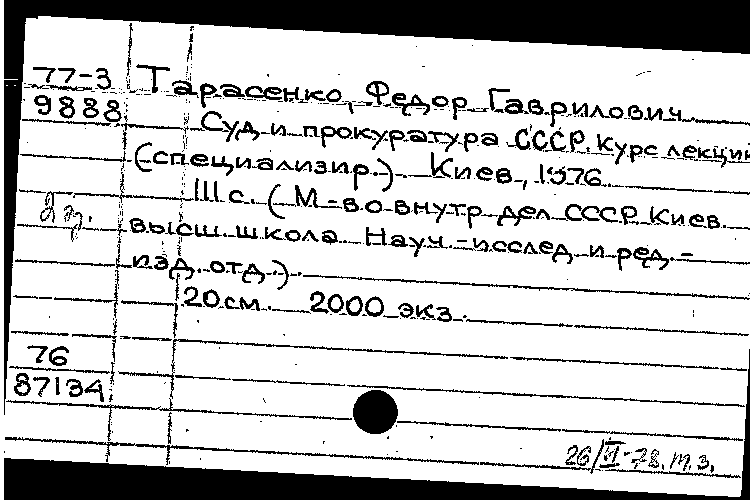 77-3
9888
Тарасенко, Федор Гаврилович
Суд и прокуратура СССР. Курс лекций
(специализир.) Киев, 1976
111 с. (М-во внутр дел СССР Киев
высш. школа Науч.-исслед и ред.-
изд. отд.).
20 см. 2000 экз.
76
87134
26/VI-78. т.з.